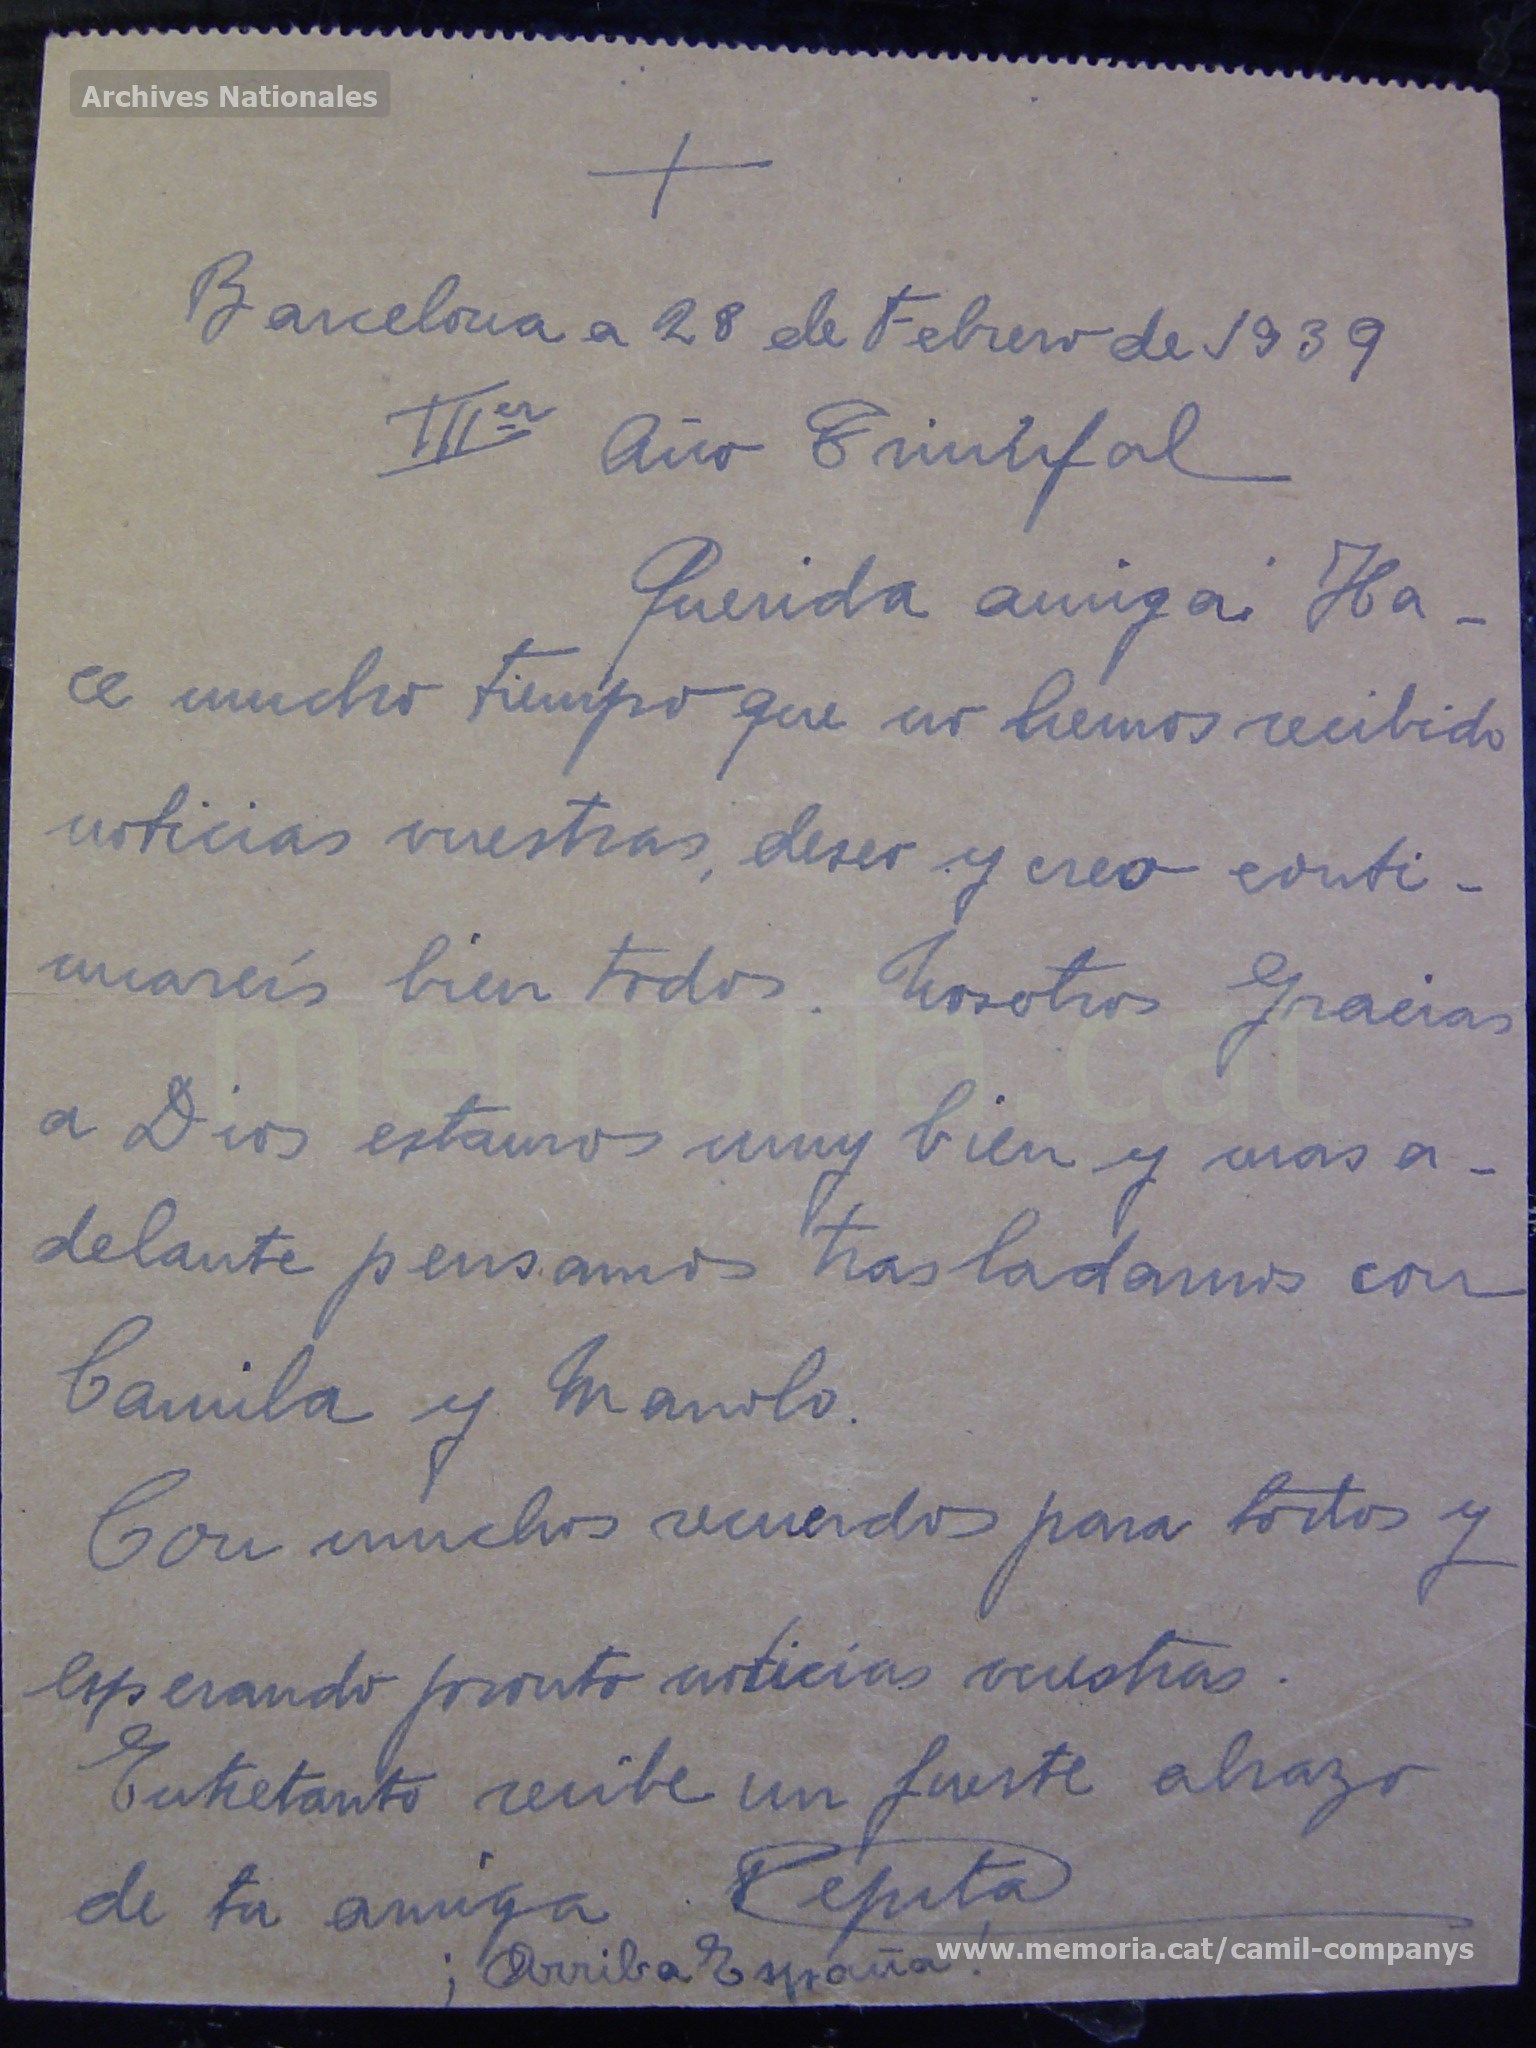 Archives Nationales
+
Barcelona a 28 de Febrero de 1939
IIIer Año Triunfal
Querida amiga: Ha-
ce mucho tiempo que no hemos recibido
noticias vuestras, deseo y creo conti-
nuareis bien todos. Nosotros Gracias
a Dios estamos muy bien y mas a-
delante pensamos trasladarnos con
Camila y Manolo.
Con muchos recuerdos para todos y
esperando pronto noticias vuestras.
Entretanto recibe un fuerte abrazo
de tu amiga Pepita
¡Arriba España!
memoria.cat
www.memoria.cat/camil-companys